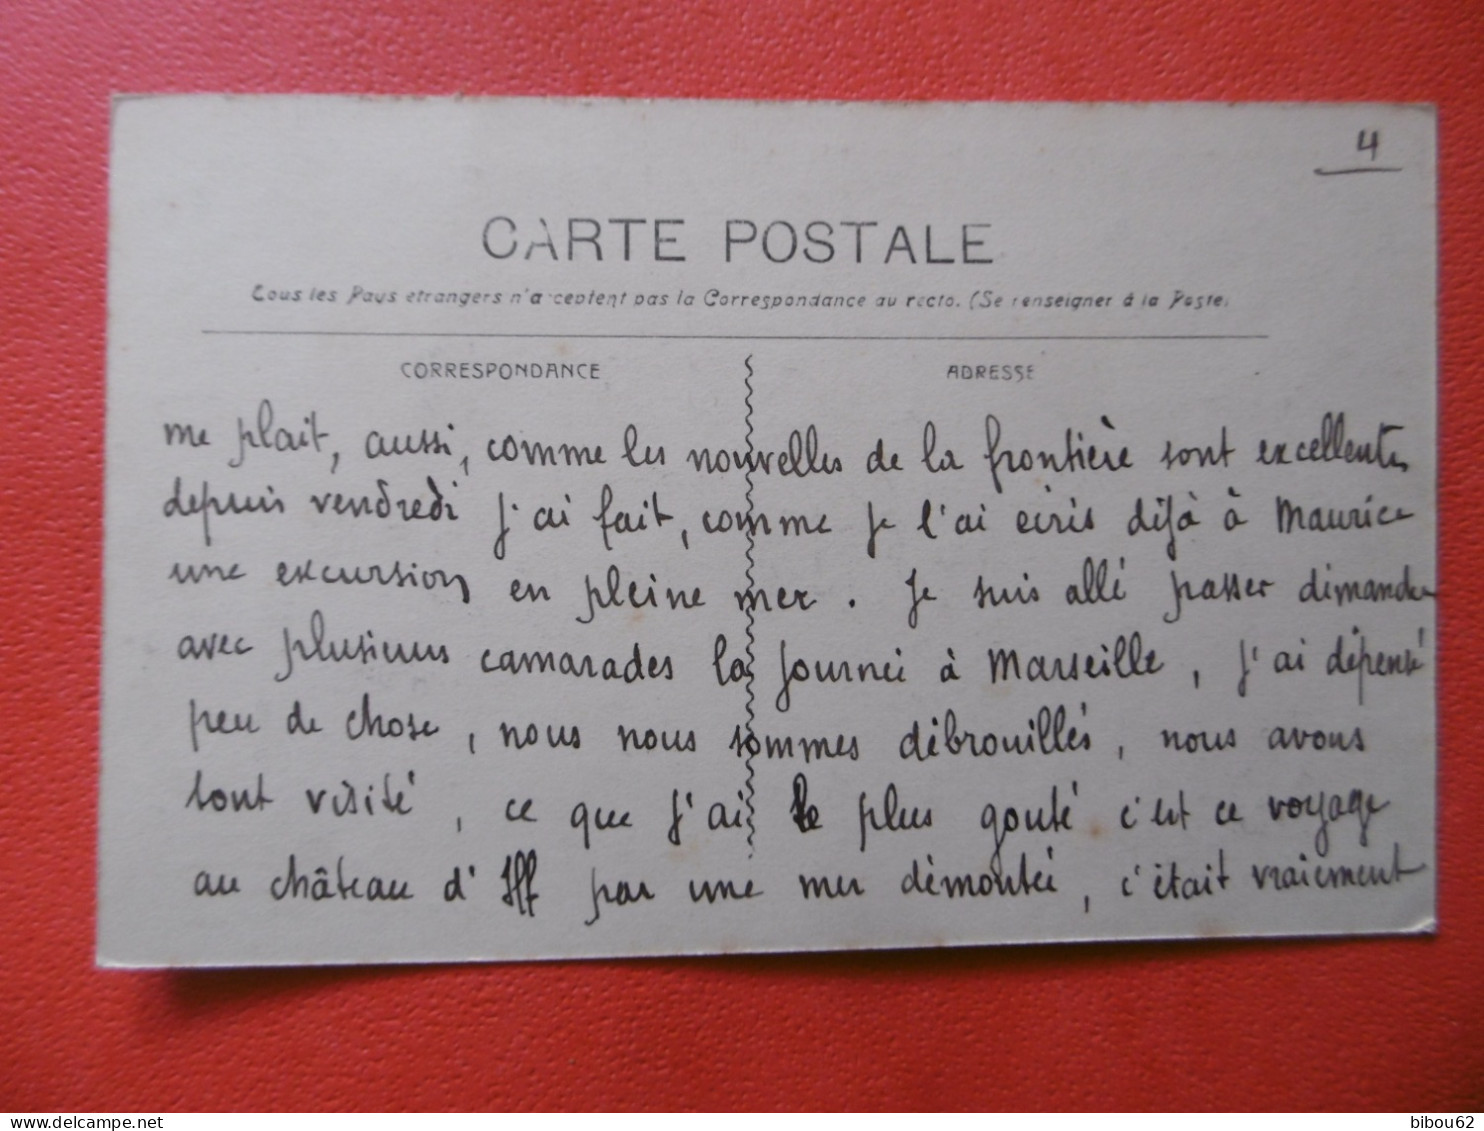 4
CARTE POSTALE
Tous les Pays etrangers n'acceptent pas la Correspondance au recto. (Se renseigner à la Poste)
CORRESPONDANCE
ADRESSE
me plait, aussi, comme les nouvelles de la frontière sont excellentes
depuis vendredi j'ai fait, comme je l'ai écris déjà à Maurice
une excursion en pleine mer. Je suis allé passer dimanche
avec plusieurs camarades la journée à Marseille, j'ai dépensé
peu de chose, nous nous sommes débrouillés, nous avons
tout visité, ce que j'ai le plus gouté c'est ce voyage
au château d'Iff par une mer démontée, c'était vraiement
bibou62